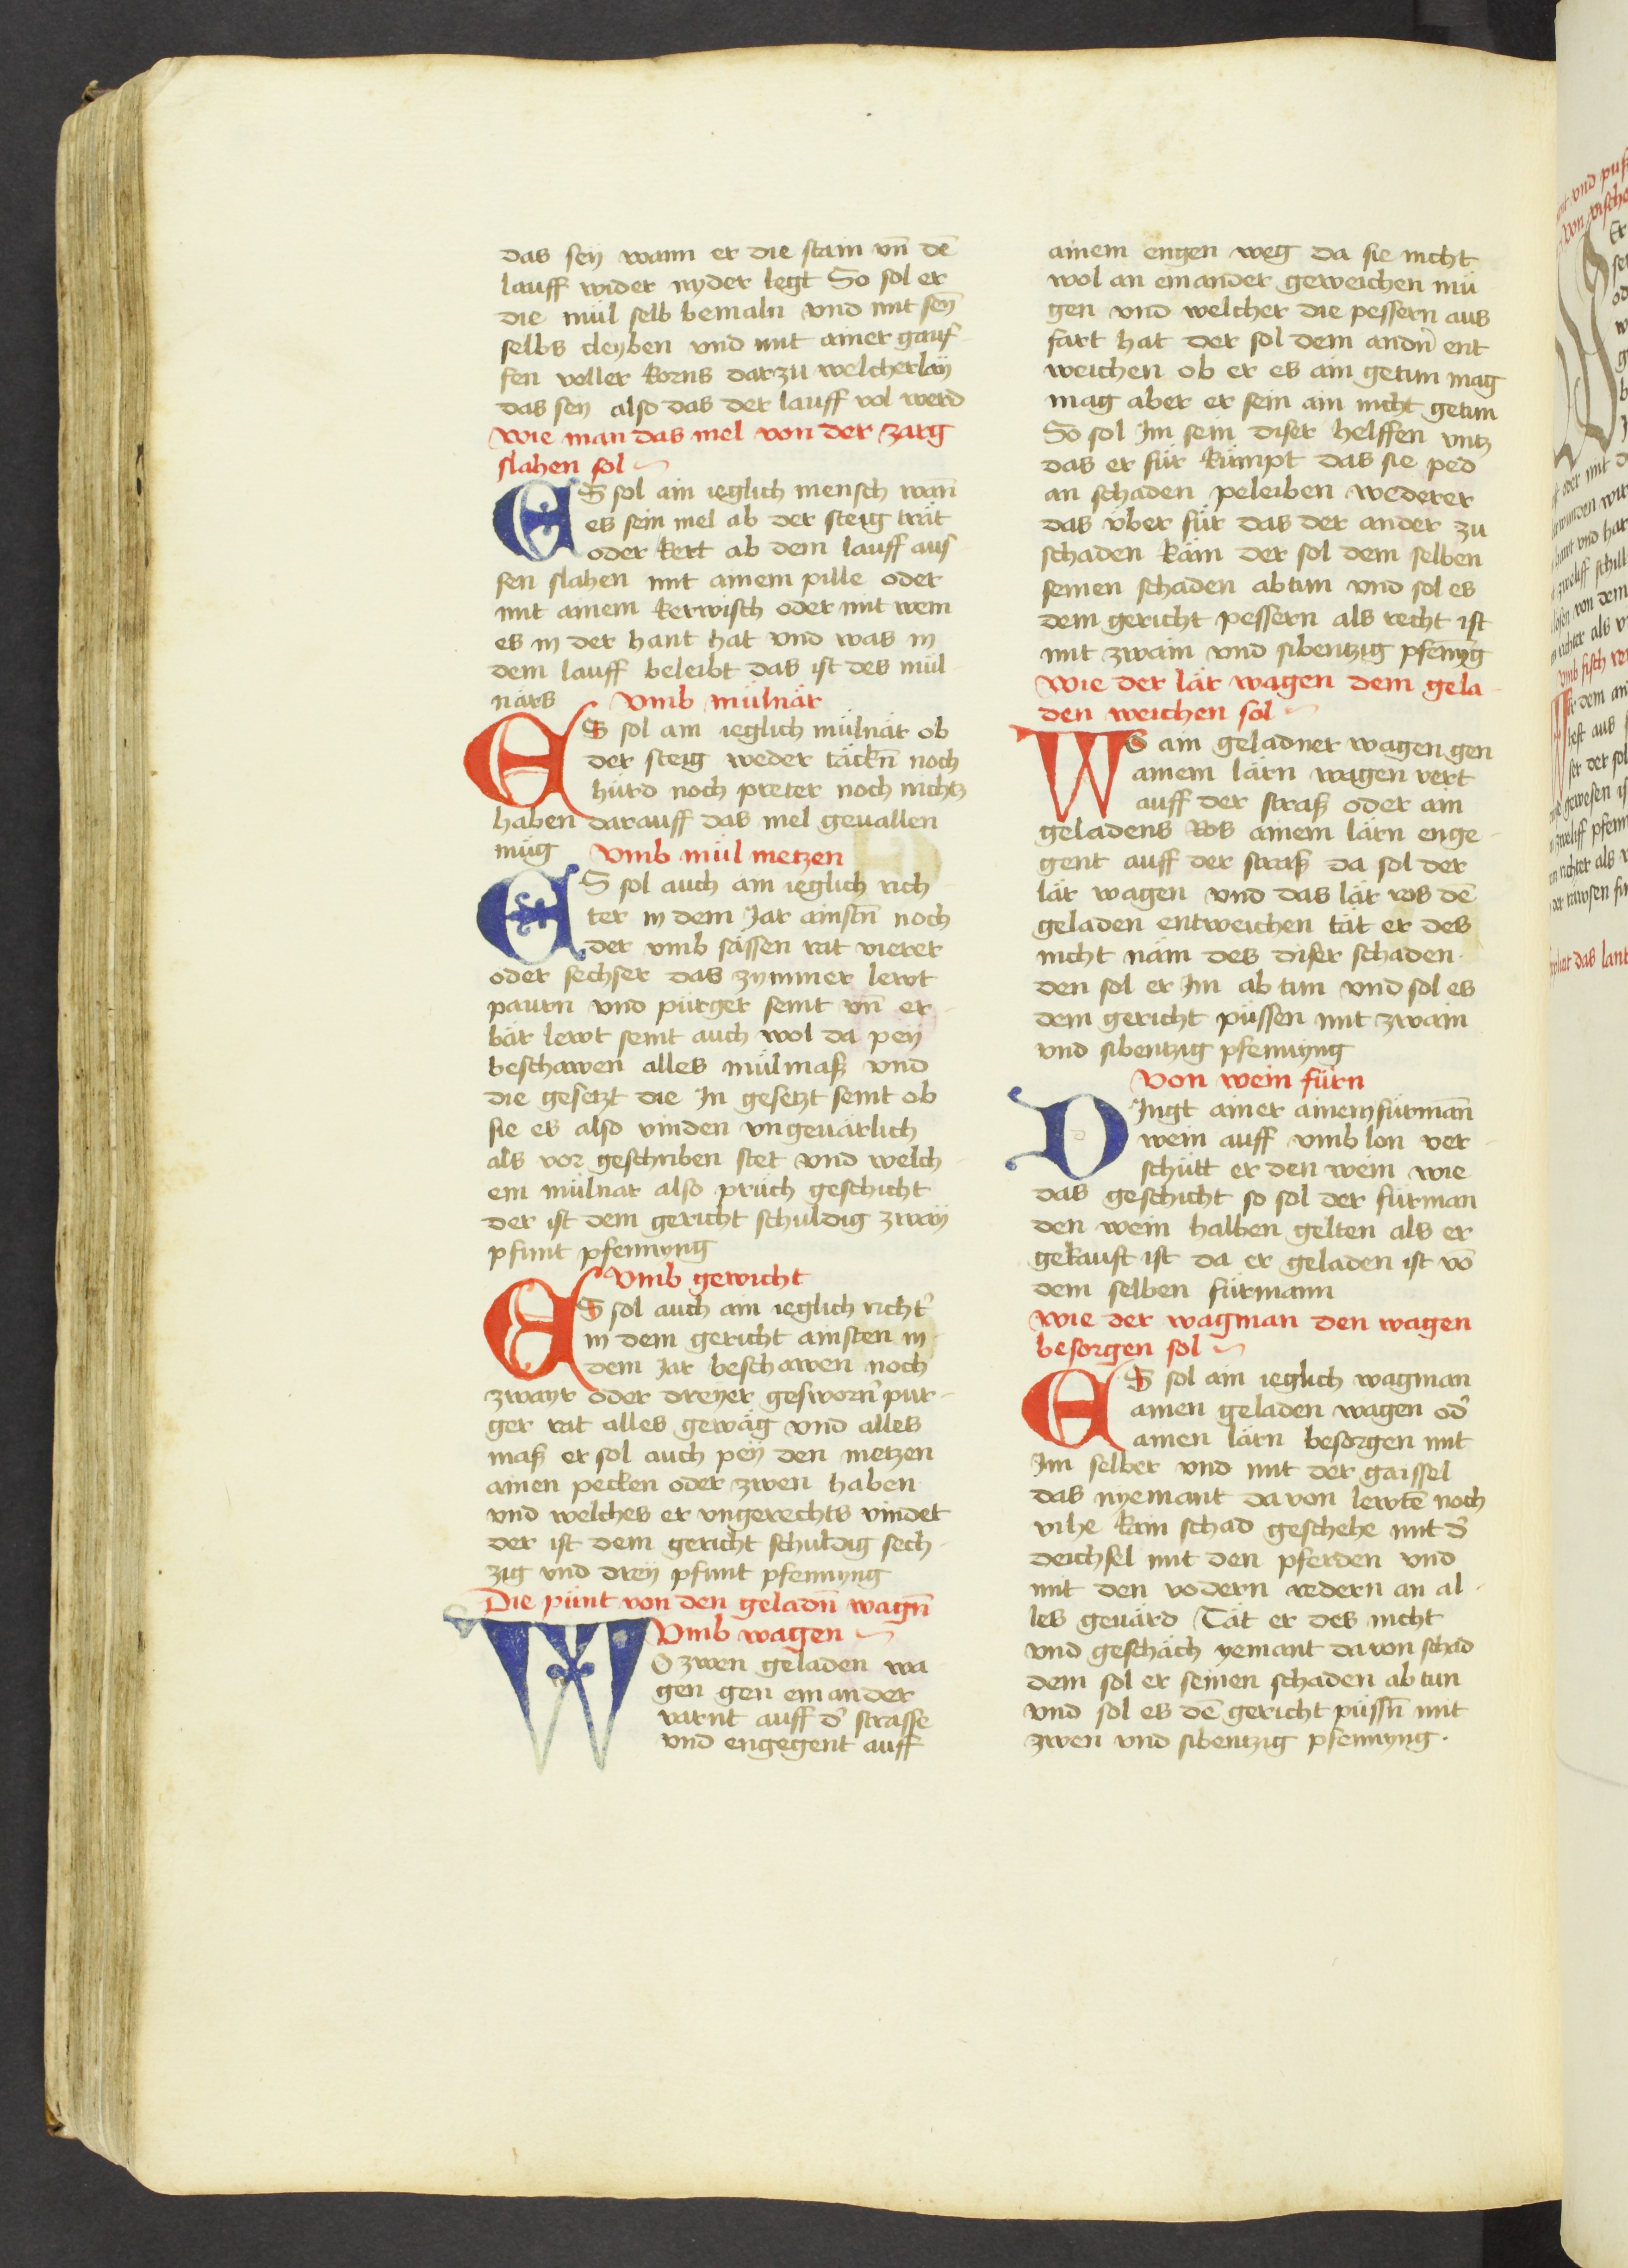 das seÿ wann er die stain vn̄ dē
lauff wider nyder legt So sol er
die mül selb bemaln vnd mit sen̄
selbs cleyben vnd mit ainer gauf-
fen voller korns darzu welcherlaÿ
das seÿ also das der lauff vol werd
Wie man das mel von der zarg
slahen sol
ES sol ain ieglich mensch wan̄
es sein mel ab der steig trät
oder kert ab dem lauff auf
sen slahen mit ainem pille oder
mit ainem kerwisch oder mit wem
es in der hant hat vnd was in
dem lauff beleibt das ist des mül
närs Vmb mülnär
ES sol ain ieglich mülnär ob
der steig weder täckn̄ noch
hürd noch preter noch nichtz
haben darauff das mel geuallen
müg Vmb mül metzen
ES sol auch ain ieglich rich
ter in dem Jar ainstn̄ noch
der vmb sässen rat vierer
oder sechser das zymmer lewt
paurn vnd pürger seint vn̄ er-
bär lewt seint auch wol da peÿ
beschawen alles mülmaß vnd
die gesetzt die Jn gesetzt seint ob
sie es also vinden vngeuärlich
als vor geschriben stet vnd welch
em mülnar also prüch geschicht
der ist dem gericht schuldig zwaÿ
pfunt pfennyng
Vmb gewicht
ES sol auch ain ieglich richt̉
in dem gericht ainsten in
dem Jar beschawen noch
zwayr oder dreÿer gesworn̉ pur-
ger rat alles gewäg vnd alles
maß er sol auch peÿ den metzen
ainen pecken oder zwen haben
vnd welches er vngerechts vindet
der ist dem gericht schuldig sech-
zig vnd dreÿ pfunt pfennyng
Die pünt von den geladn̄ wagn̄
Vmb wagen
WO zwen geladen wa
gen gen einander
varnt auff d̉ strasse
vnd engegent auff
ainem engen weg da sie nicht
wol an einander geweichen mü
gen vnd welcher die pessern aus
fart hat der sol dem andn̉ ent
weichen ob er es ain getun mag
mag aber er sein ain nicht getun
So sol Jm sein diser helffen vntz
das er für kümpt das sie ped
an schaden peleiben wederer
das über für das der ander zu
schaden käm der sol dem selben
seinen schaden abtun vnd sol es
dem gericht pessern als recht ist
mit zwain vnd sibentzig pfennyg
Wie der lär wagen dem gela-
den weichen sol
WO ain geladner wagen gen
ainem lärn wagen vert
auff der straß oder ain
geladens Ros ainem lärn enge-
gent auff der straß da sol der
lär wagen vnd das lär ros dē
geladen entweichen tät er des
nicht näm des diser schaden
den sol er Jm ab tun vnd sol es
dem gericht püssen mit zwain
vnd sibentzig pfennyng
Von wein fürn
DJngt ainer ainem fürman̄
wein auff vmb lon ver-
schütt er den wein wie
das geschicht so sol der fürman
den wein halben gelten als er
gekauft ist da er geladen ist vō
dem selben fürmann
Wie der wagman den wagen
besorgen sol
ES sol ain ieglich wagman
ainen geladen wagen od̉
ainen lärn besorgen mit
Jm selber vnd mit der gaissel
das nyemant dauon lewtē noch
vihe kain schad geschehe mit d̉
deichsel mit den pferden vnd
mit den vodern redern an al-
les geuärd Tät er des nicht
vnd geschäch yemant dauon schad
dem sol er seinen schaden ab tun
vnd sol es dē gericht püssn̄ mit
zwen vnd sibentzig pfennyng.